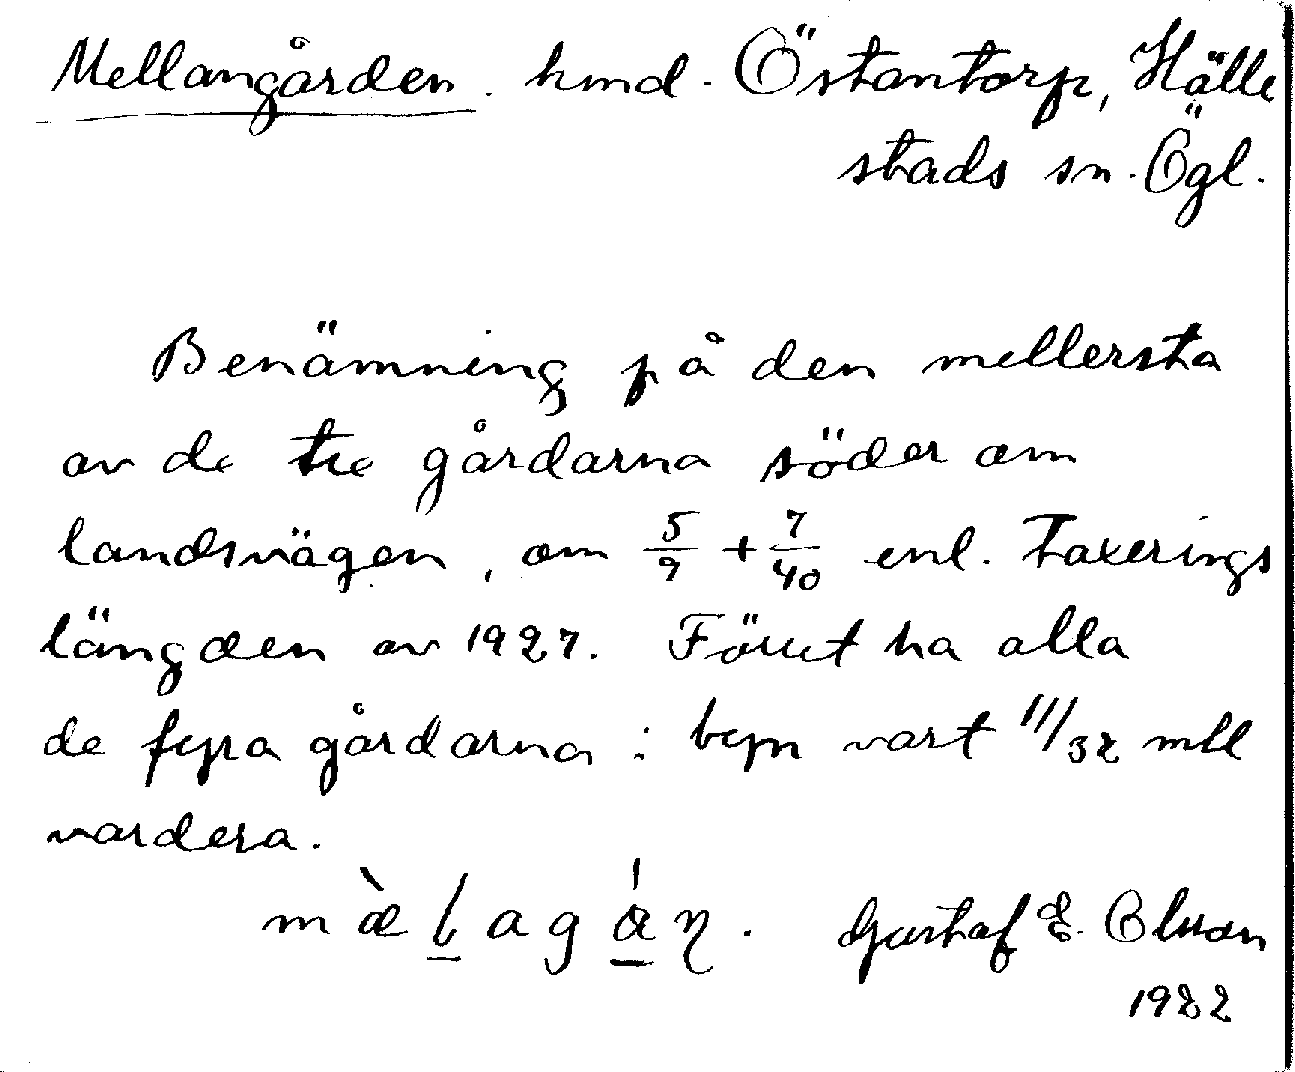 Mellangården. hmd. Östantorp, Hälle
stads sn. Ögl.
Benämning på den mellersta
av de tre gårdarna söder om
landsvägen, om 5/9 + 7/40 enl. Taxerings
längden av 1927. Förut ha alla
de fyra gårdarna i byn vart 11/32 mtl
vardera.
Gustaf E. Olsson
1922